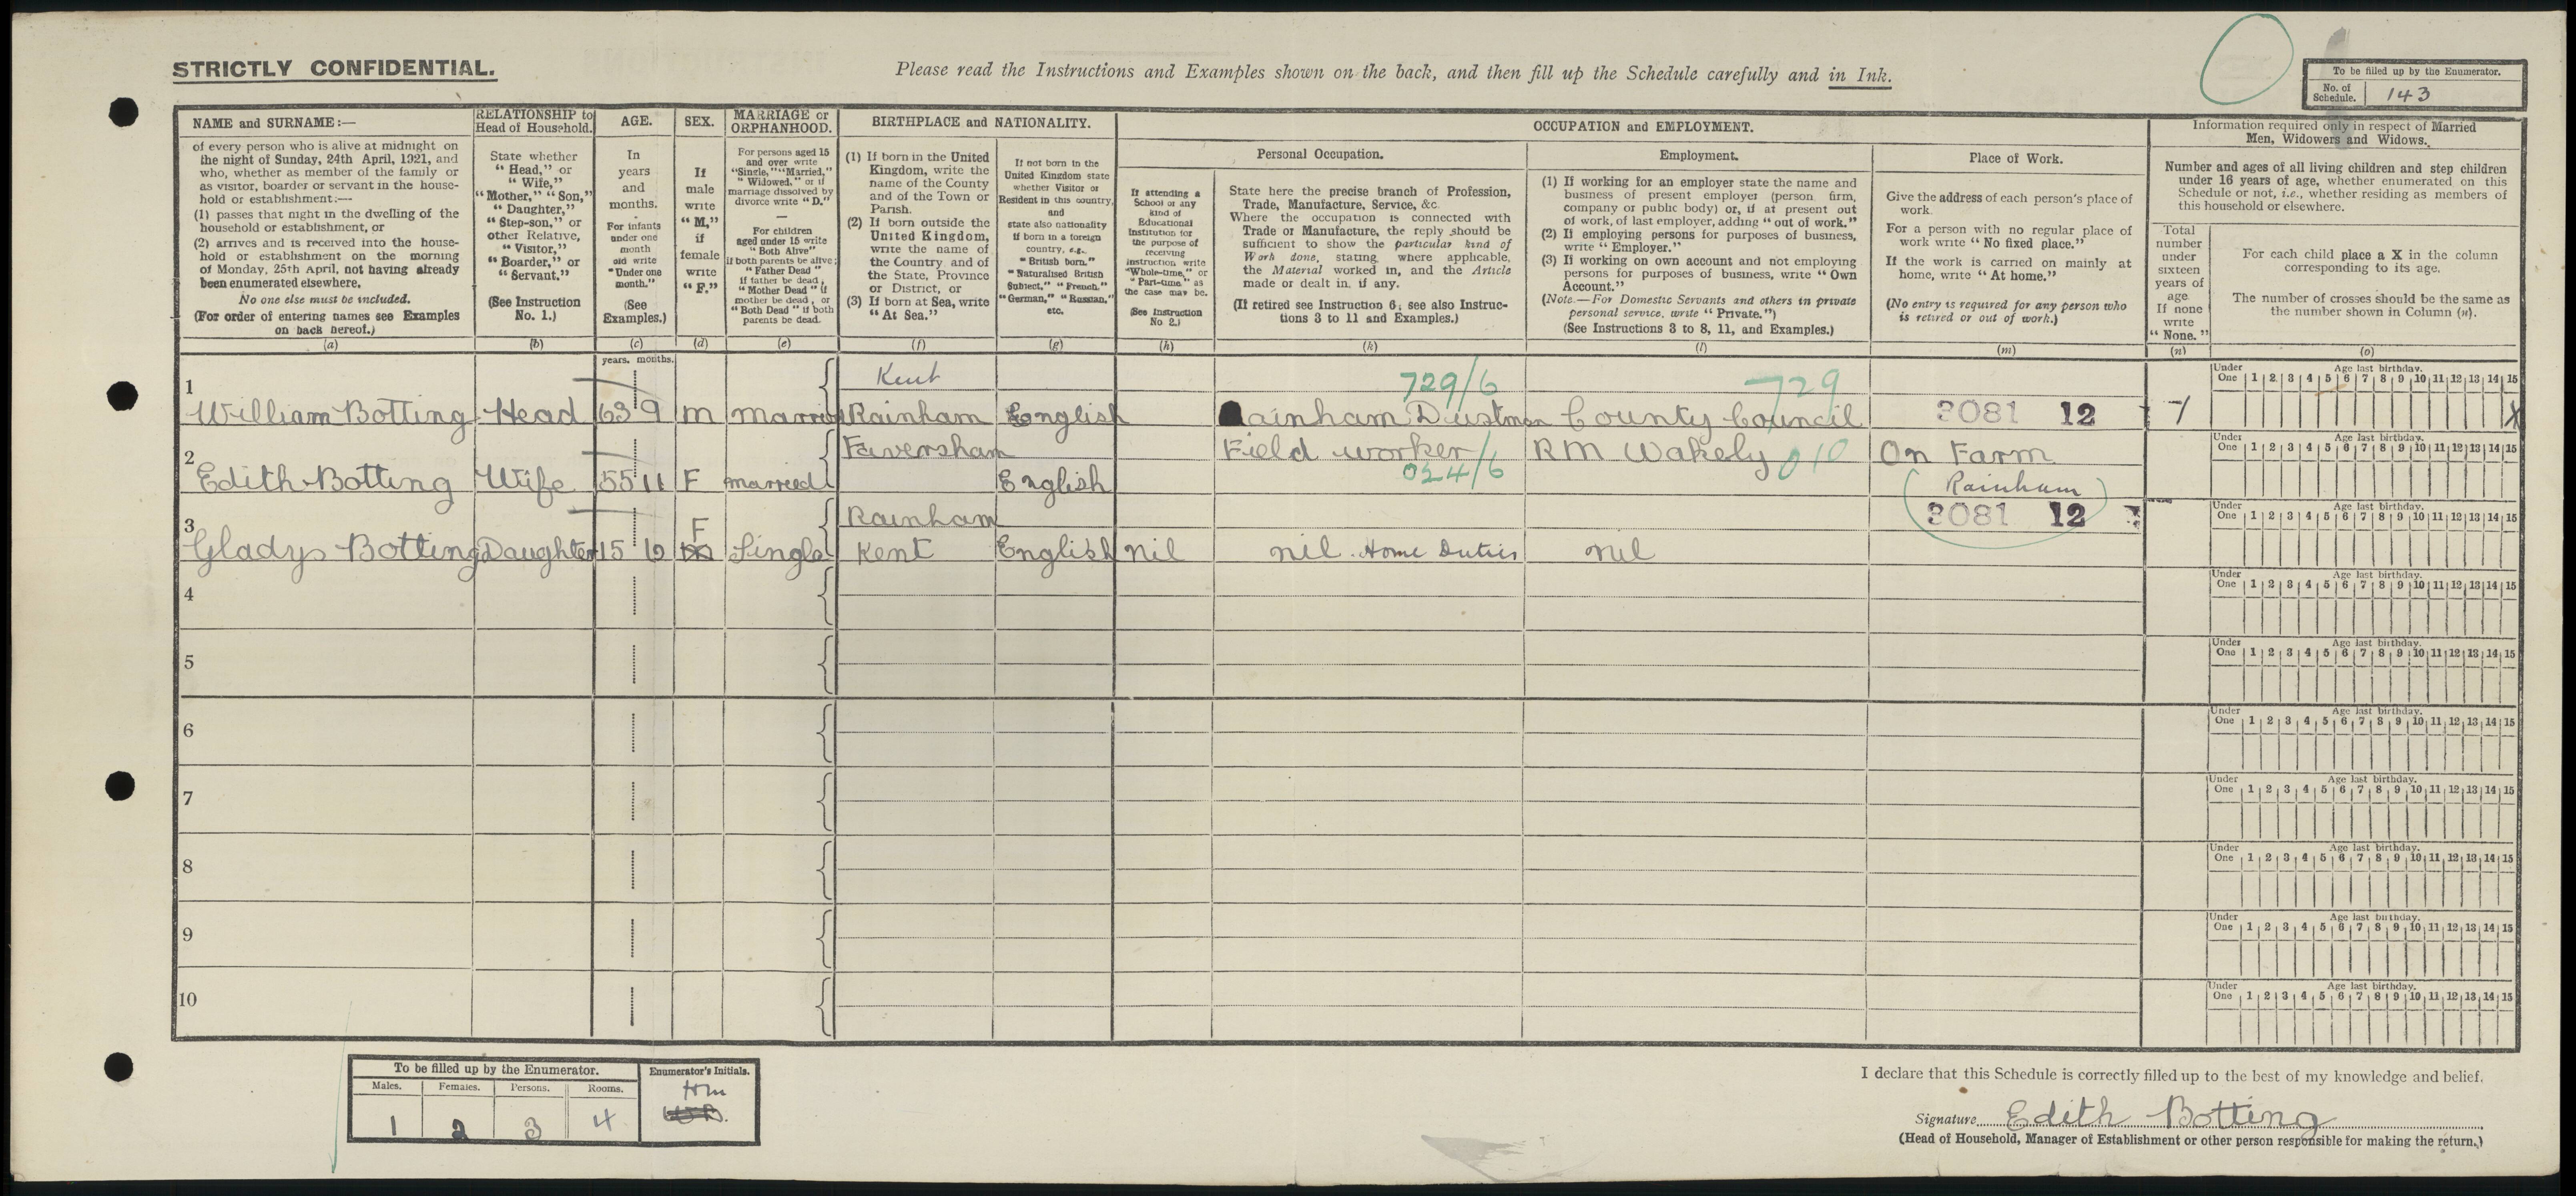 STRICTLY CONFIDENTIAL.
Please read the Instructions and Examples shown on the back, and then fill up the Schedule carefully and in Ink.
To be filled up by the Enumerator.
No. of Schedule. 143
NAME and SURNAME :—
of every person who is alive at midnight on
the night of Sunday, 24th April, 1921, and
who, whether as member of the family or
as visitor, boarder or servant in the house-
hold or establishment :—
(1) passes that night in the dwelling of the
household or establishment, or
(2) arrives and is received into the house-
hold or establishment on the morning
of Monday, 25th April, not having already
been enumerated elsewhere.
No one else must be included.
(For order of entering names see Examples
on back hereof.)
(a)
RELATIONSHIP to
Head of Household.
State whether
" Head," or
" Wife,"
" Mother," " Son,"
" Daughter,"
" Step-son," or
other Relative,
" Visitor,"
" Boarder," or
" Servant."
(See Instruction
No. 1.)
(b)
AGE.
In
years
and
months.
For infants
under one
month
old write
" Under one
month."
(See
Examples.)
(c)
SEX.
If
male
write
" M,"
if
female
write
" F."
(d)
MARRIAGE or
ORPHANHOOD.
For persons aged 15
and over write
" Single," " Married,"
" Widowed," or if
marriage dissolved by
divorce write " D."
—
For children
aged under 15 write
" Both Alive "
if both parents be alive ;
" Father Dead "
if father be dead ;
" Mother Dead " if
mother be dead, or
" Both Dead " if both
parents be dead.
(e)
BIRTHPLACE and NATIONALITY.
(1) If born in the United
Kingdom, write the
name of the County
and of the Town or
Parish.
(2) If born outside the
United Kingdom,
write the name of
the Country, and of
the State, Province
or District, or
(3) If born at Sea, write
" At Sea."
(f)
If not born in the
United Kingdom state
whether Visitor or
Resident in this country,
and
state also nationality
if born in a foreign
country, e.g.,
" British born."
" Naturalised British
Subject," " French,"
" German," " Russian,"
etc.
(g)
OCCUPATION and EMPLOYMENT.
If attending a
School or any
kind of
Educational
Institution for
the purpose of
receiving
instruction write
" Whole-time," or
" Part-time," as
the case may be.
(See Instruction
No 2.)
(h)
Personal Occupation.
State here the precise branch of Profession,
Trade, Manufacture, Service, &c.
Where the occupation is connected with
Trade or Manufacture, the reply should be
sufficient to show the particular kind of
Work done, stating, where applicable,
the Material worked in, and the Article
made or dealt in, if any.
(If retired see Instruction 6 ; see also Instruc-
tions 3 to 11 and Examples.)
(k)
Employment.
(1) If working for an employer state the name and
business of present employer (person, firm,
company or public body) or, if at present out
of work, of last employer, adding " out of work."
(2) If employing persons for purposes of business,
write " Employer."
(3) If working on own account and not employing
persons for purposes of business, write " Own
Account."
(Note.—For Domestic Servants and others in private
personal service, write " Private.")
(See Instructions 3 to 8, 11, and Examples.)
(l)
Place of Work.
Give the address of each person's place of
work.
For a person with no regular place of
work write " No fixed place."
If the work is carried on mainly at
home, write " At home."
(No entry is required for any person who
is retired or out of work.)
(m)
Information required only in respect of Married
Men, Widowers and Widows.
Number and ages of all living children and step children
under 16 years of age, whether enumerated on this
Schedule or not, i.e., whether residing as members of
this household or elsewhere.
Total
number
under
sixteen
years of
age
If none
write
" None."
(n)
For each child place a X in the column
corresponding to its age.
The number of crosses should be the same as
the number shown in Column (n).
(o)
years. months.
1
William Botting Head 63 9 M Married Kent Rainham English Rainham Dustman 729/6 County Council 729 3081 12 1
Under One 1 2 3 4 5 6 7 8 9 10 11 12 13 14 15 Age last birthday. X
2
Edith Botting Wife 55 11 F Married Faversham English Field worker 024/6 RM Wakely 010 On Farm (Rainham) 3081 12
Under One 1 2 3 4 5 6 7 8 9 10 11 12 13 14 15 Age last birthday.
3
Gladys Botting Daughter 15 10 F Single Rainham Kent English nil nil. Home Duties nil
Under One 1 2 3 4 5 6 7 8 9 10 11 12 13 14 15 Age last birthday.
4
Under One 1 2 3 4 5 6 7 8 9 10 11 12 13 14 15 Age last birthday.
5
Under One 1 2 3 4 5 6 7 8 9 10 11 12 13 14 15 Age last birthday.
6
Under One 1 2 3 4 5 6 7 8 9 10 11 12 13 14 15 Age last birthday.
7
Under One 1 2 3 4 5 6 7 8 9 10 11 12 13 14 15 Age last birthday.
8
Under One 1 2 3 4 5 6 7 8 9 10 11 12 13 14 15 Age last birthday.
9
Under One 1 2 3 4 5 6 7 8 9 10 11 12 13 14 15 Age last birthday.
10
Under One 1 2 3 4 5 6 7 8 9 10 11 12 13 14 15 Age last birthday.
To be filled up by the Enumerator.
Males. Females. Persons. Rooms.
1 2 3 4
Enumerator's Initials.
Hm
I declare that this Schedule is correctly filled up to the best of my knowledge and belief.
Signature Edith Botting
(Head of Household, Manager of Establishment or other person responsible for making the return.)